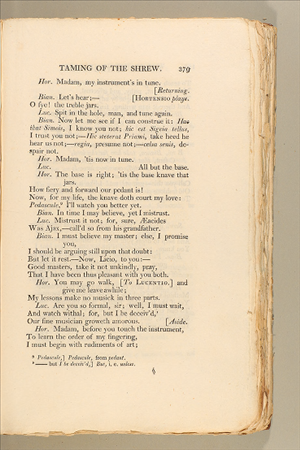 TAMING OF THE SHREW. 279
Hor. Madam, my instrument's in tune.
[Returning.
Bian. Let's hear;— [HORTENSIO plays.
O fye! the treble jars.
Luc. Spit in the hole, man, and tune again.
Bian. Now let me see if I can construe it: Hac
that Simois, I know you not; hic est Sigeia tellus,
I trust you not;—Hic steterat Priami, take heed he
hear us not;—regia, presume not;—celsa senis, de-
spair not.
Hor. Madam, 'tis now in tune.
Luc. All but the base.
Hor. The base is right; 'tis the base knave that
jars.
How fiery and forward our pedant is!
Now, for my life, the knave doth court my love:
Pedascule,⁹ I'll watch you better yet.
Bian. In time I may believe, yet I mistrust.
Luc. Mistrust it not; for, sure, Æacides
Was Ajax,—call'd so from his grandfather.
Bian. I must believe my master; else, I promise
you,
I should be arguing still upon that doubt:
But let it rest.—Now, Licio, to you:—
Good masters, take it not unkindly, pray,
That I have been thus pleasant with you both.
Hor. You may go walk, [To LUCENTIO.] and
give me leave awhile;
My lessons make no musick in three parts.
Luc. Are you so formal, sir; well, I must wait,
And watch withal; for, but I be deceiv'd,¹
Our fine musician groweth amorous. [Aside.
Hor. Madam, before you touch the instrument,
To learn the order of my fingering,
I must begin with rudiments of art;
⁹ Pedascule,] Pedascule, from pedant.
¹ —— but I be deceiv'd,] But, i. e. unless.